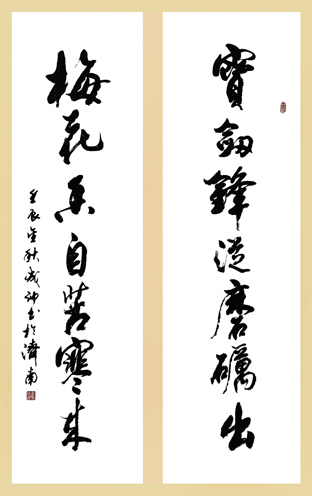 寶劔鋒從磨礪出
梅花香自苦寒來
壬辰金秋成沖書於濟南